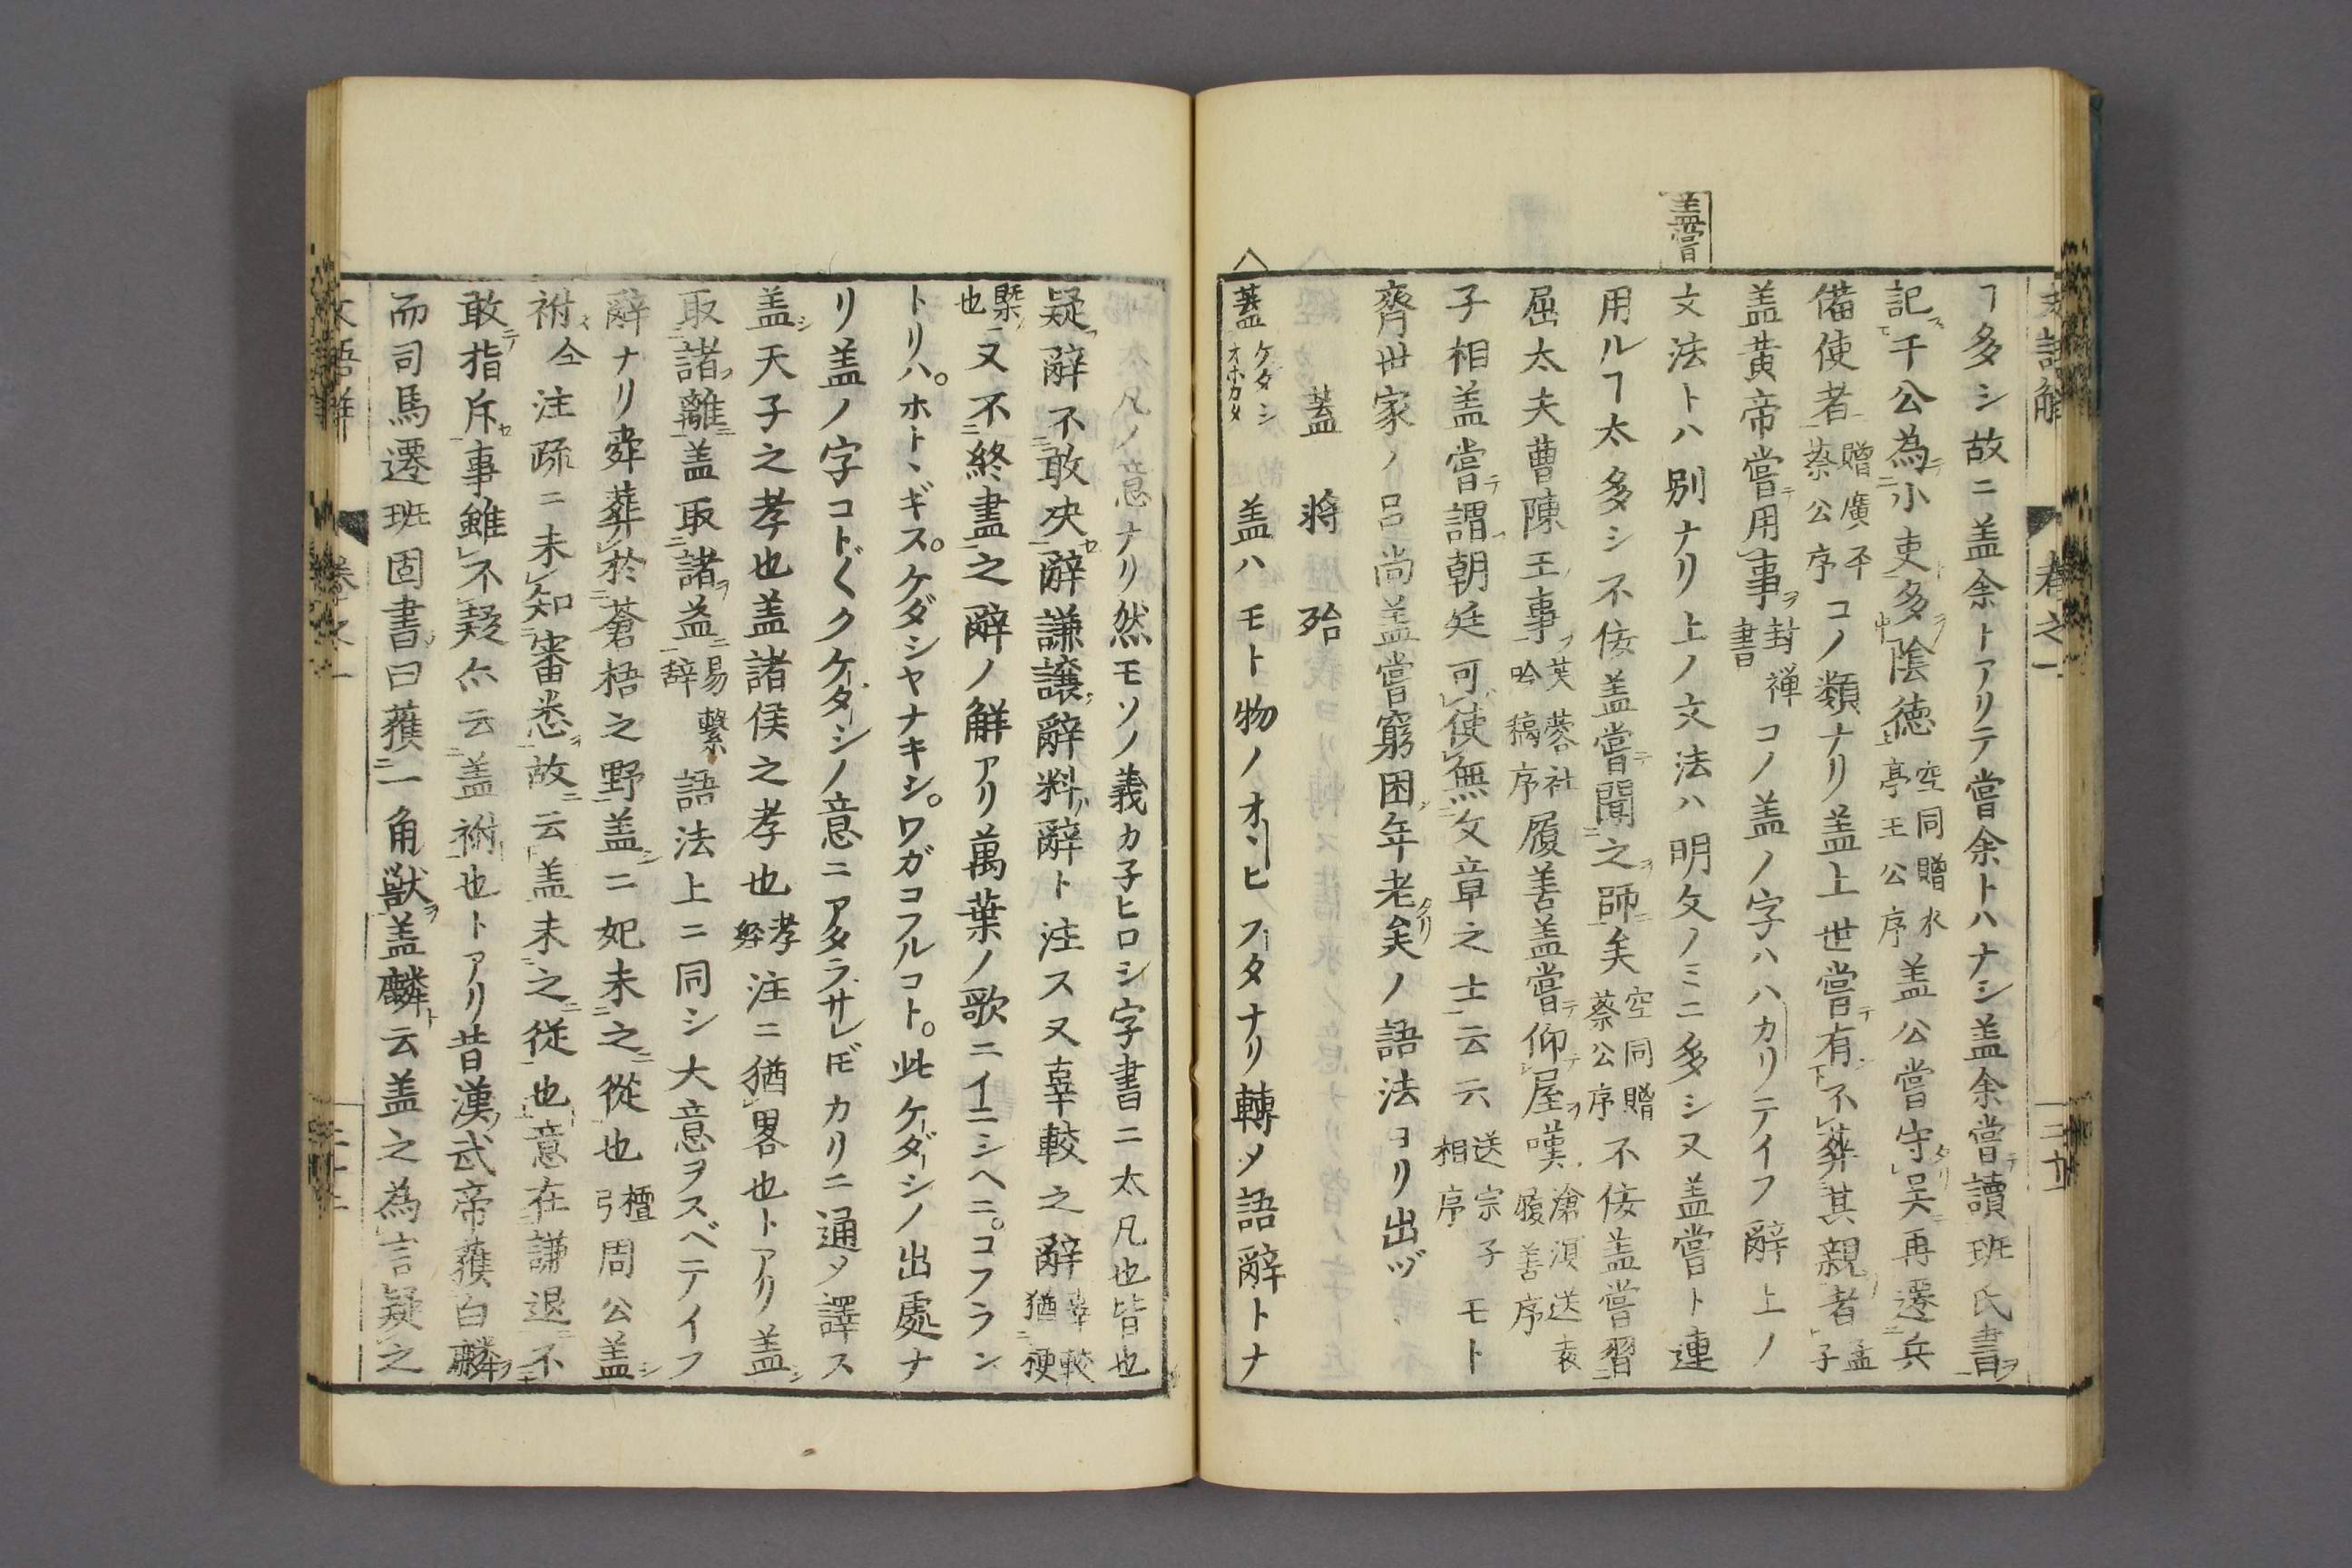 蓋嘗
ヿ多シ故ニ盖余トアリテ嘗余トハナシ盖余嘗讀班氏書
記千公為小吏多陰徳空同贈水亭王公序盖公嘗守吴再遷兵
備使者贈廣平蔡公序コノ類ナリ盖上世嘗有不葬其親者孟子
盖黄帝嘗用事封禅書コノ盖ノ字ハハカリテイフ辭上ノ
文法トハ別ナリ上ノ文法ハ明文ノミニ多シ又盖嘗ト連
用ルヿ太多シ不佞盖嘗聞之師矣空同贈蔡公序不佞盖嘗習
屈太夫曹陳王事芙蓉社吟稿序履善盖嘗仰屋嘆滄溟送袁履善序
子相盖嘗謂朝廷可使無文章之士云云送宗子相序モト
齊世家ノ呂尚盖嘗窮困年老矣ノ語法ヨリ出ヅ
蓋 將 殆
蓋ケダシオホカタ 盖ハモト物ノオヽヒフタナリ轉メ語辭トナ
太凡ノ意ナリ然モソノ義カ子ヒロシ字書ニ太凡也皆也
疑辭不敢决辭謙譲辭料辭ト注ス又辜較之辭辜較猶梗
槩也又不終盡之辭ノ觧アリ萬葉ノ歌ニイニシヘニ。コフラン
トリハ。ホトヽギス。ケダシヤナキシ。ワガコフルコト。此ケダシノ出處ナ
リ盖ノ字コト〴〵クケダシノ意ニアタラザレ𪜈カリニ通メ譯ス
盖天子之孝也盖諸侯之孝也孝經注ニ猶畧也トアリ盖
取諸離盖取諸益易繫辞語法上ニ同シ大意ヲスベテイフ
辭ナリ舜葬於蒼梧之野盖二妃未之從也檀弓周公盖
祔仝注疏ニ未知審悉故云盖未之從也意在謙退不
敢指斥事雖不疑亦云盖祔也トアリ昔漢武帝蒦白麟
而司馬遷班固書曰蒦一角獸盖麟云盖之為言疑之